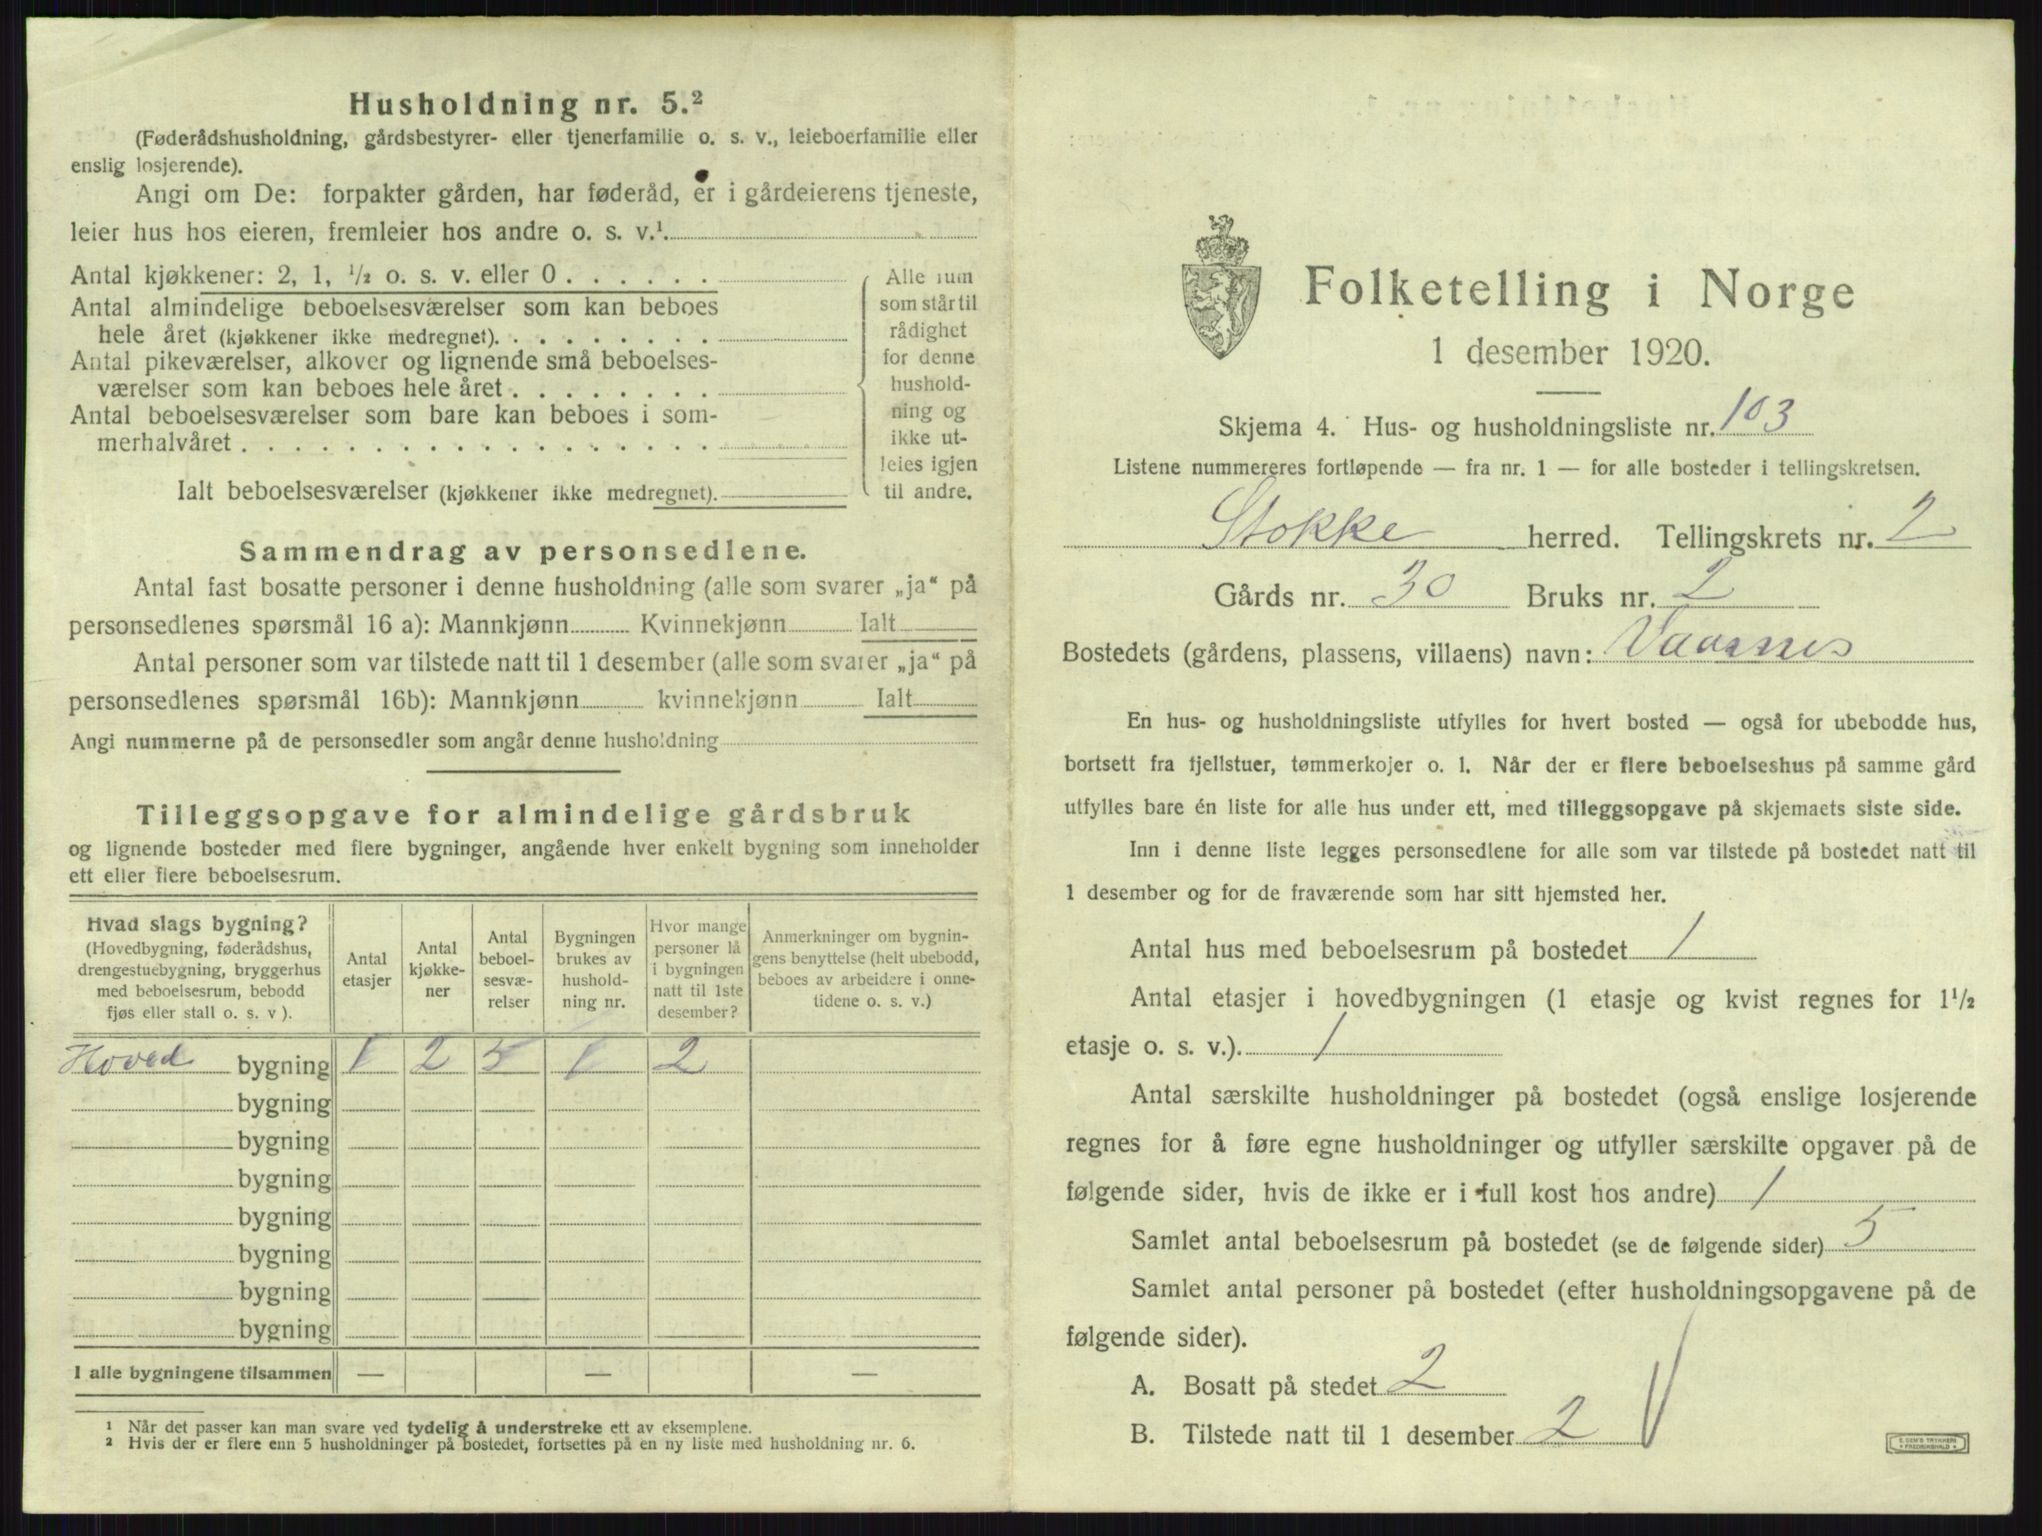 Husholdning nr. 5.²
(Føderådshusholdning, gårdsbestyrer- eller tjenerfamilie o. s. v., leieboerfamilie eller
enslig losjerende).
Angi om De: forpakter gården, har føderåd, er i gårdeierens tjeneste,
leier hus hos eieren, fremleier hos andre o. s. v.¹.
Antal kjøkkener: 2, 1, ½ o. s. v. eller 0 . . . . . .
Antal almindelige beboelsesværelser som kan beboes
hele året (kjøkkener ikke medregnet). . . . . . . . .
Antal pikeværelser, alkover og lignende små beboelses-
værelser som kan beboes hele året . . . . . . . .
Antal beboelsesværelser som bare kan beboes i som-
merhalvåret . . . . . . . . . . . . . . . . . .
Ialt beboelsesværelser (kjøkkener ikke medregnet).
Alle rum
som står til
rådighet
for denne
hushold-
ning og
ikke ut-
leies igjen
til andre.
Sammendrag av personsedlene.
Antal fast bosatte personer i denne husholdning (alle som svarer „ja“ på
personsedlenes spørsmål 16 a): Mannkjønn Kvinnekjønn Ialt
Antal personer som var tilstede natt til 1 desember (alle som svarer „ja“ på
personsedlenes spørsmål 16b): Mannkjønn kvinnekjønn Ialt
Angi nummerne på de personsedler som angår denne husholdning
Tilleggsopgave for almindelige gårdsbruk
og lignende bosteder med flere bygninger, angående hver enkelt bygning som inneholder
ett eller flere beboelsesrum.
Hvad slags bygning?
(Hovedbygning, føderådshus,
drengestuebygning, bryggerhus
med beboelsesrum, bebodd
fjøs eller stall o. s. v ).
Antal
etasjer
Antal
kjøkke-
ner
Antal
beboel-
sesvæ-
relser
Bygningen
brukes av
hushold-
ning nr.
Hvor mange
personer lå
i bygningen
natt til 1ste
desember?
Anmerkninger om bygnin-
gens benyttelse (helt ubebodd,
beboes av arbeidere i onne-
tidene o. s. v.)
Hoved bygning 1 2 5 1 2
bygning
bygning
bygning
bygning
bygning
bygning
bygning
I alle bygningene tilsammen — — —
¹ Når det passer kan man svare ved tydelig å understreke ett av eksemplene.
² Hvis der er flere enn 5 husholdninger på bostedet, fortsettes på en ny liste med husholdning nr. 6.
Folketelling i Norge
1 desember 1920.
Skjema 4. Hus- og husholdningsliste nr. 103
Listene nummereres fortløpende — fra nr. 1 — for alle bosteder i tellingskretsen.
Stokke herred. Tellingskrets nr. 2
Gårds nr. 30 Bruks nr. 2
Bostedets (gårdens, plassens, villaens) navn: Vaarnes
En hus- og husholdningsliste utfylles for hvert bosted — også for ubebodde hus,
bortsett fra fjellstuer, tømmerkojer o. l. Når der er flere beboelseshus på samme gård
utfylles bare én liste for alle hus under ett, med tilleggsopgave på skjemaets siste side.
Inn i denne liste legges personsedlene for alle som var tilstede på bostedet natt til
1 desember og for de fraværende som har sitt hjemsted her.
Antal hus med beboelsesrum på bostedet 1
Antal etasjer i hovedbygningen (1 etasje og kvist regnes for 1½
etasje o. s. v.). 1
Antal særskilte husholdninger på bostedet (også enslige losjerende
regnes for å føre egne husholdninger og utfyller særskilte opgaver på de
følgende sider, hvis de ikke er i full kost hos andre) 1
Samlet antal beboelsesrum på bostedet (se de følgende sider) 5
Samlet antal personer på bostedet (efter husholdningsopgavene på de
følgende sider).
A. Bosatt på stedet 2
B. Tilstede natt til 1 desember 2
E. SEM'S TRYKKERI
FREDRIKSHALD